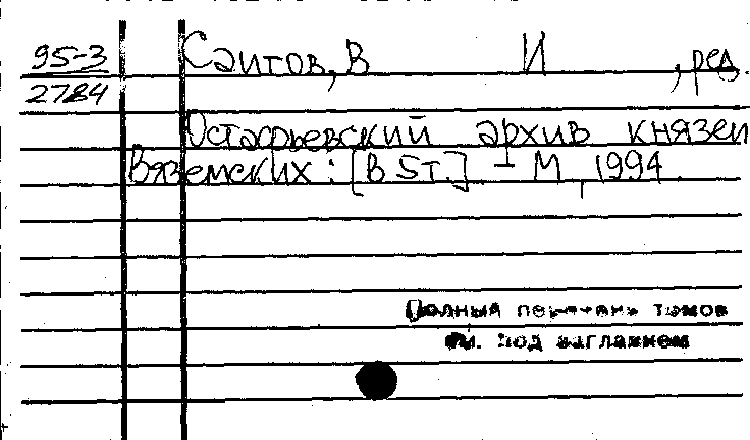 95-3
2784
Саитов, В И , ред.
Остафьевский архив князей
Вяземских : [В 5 т.] - М , 1994.
Полный перечень томов
см. под заглавием